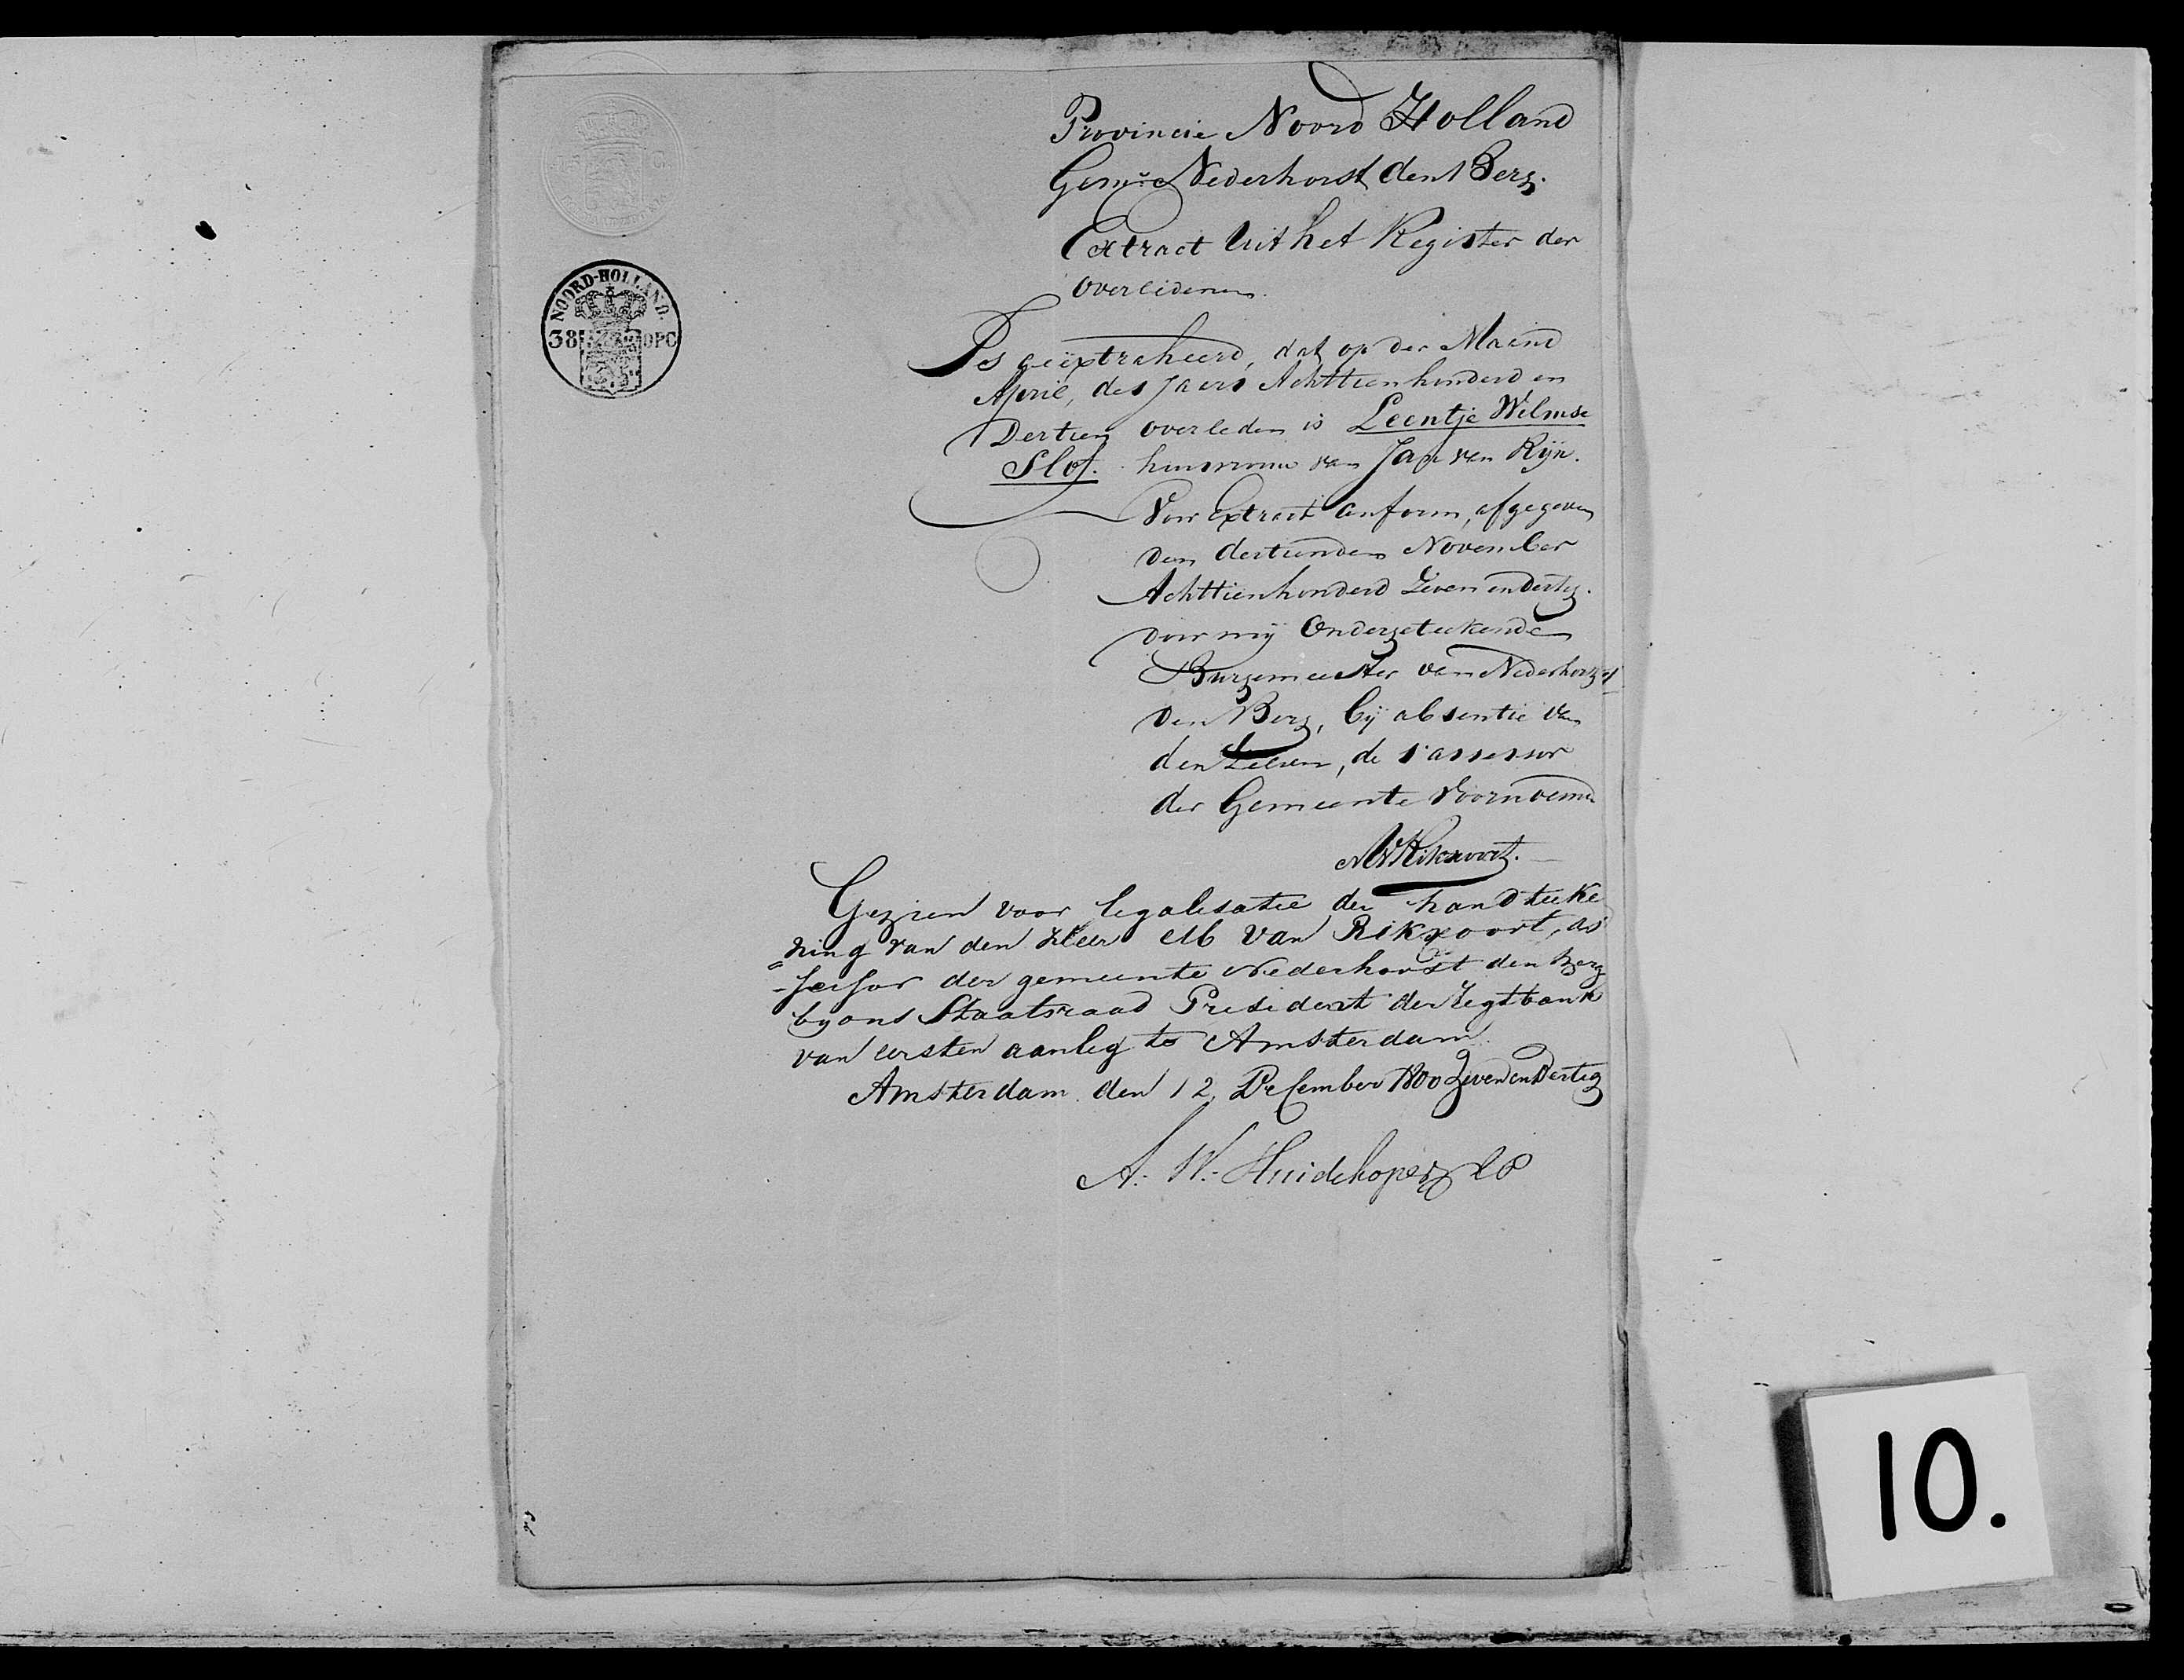 Provincie Noord Holland
Gemte Nederhorst den Berg.
Extract uit het Register der
overledenen.
NOORD-HOLLAND.
38 OPC
Is geëxtraheerd, dat op der Maand
April, des Jaers Achttienhonderd en
Dertien overleden is Leentje Wilmse
Slof. huisvrouw van Jan van Rijn.
Voor Extract Conform, afgegeven
den dertienden November
Achttienhonderd Zeven en dertig.
door mij Ondergeteekende
Burgemeester van Nederhorst
den Berg, bij absentie van
den Zelven, de 1e assessor
der Gemeente Voornoemd
Rikxoort.
Gezien voor legalisatie der handteeke
=ning van den Heer van Rikxoort, as
-sessor der gemeente Nederhorst den Berg
by ons Staatsraad President der regtbank
van eersten aanleg te Amsterdam.
Amsterdam den 12 December 1800 Zeven en Dertig
A: W: Huidekoper
10.